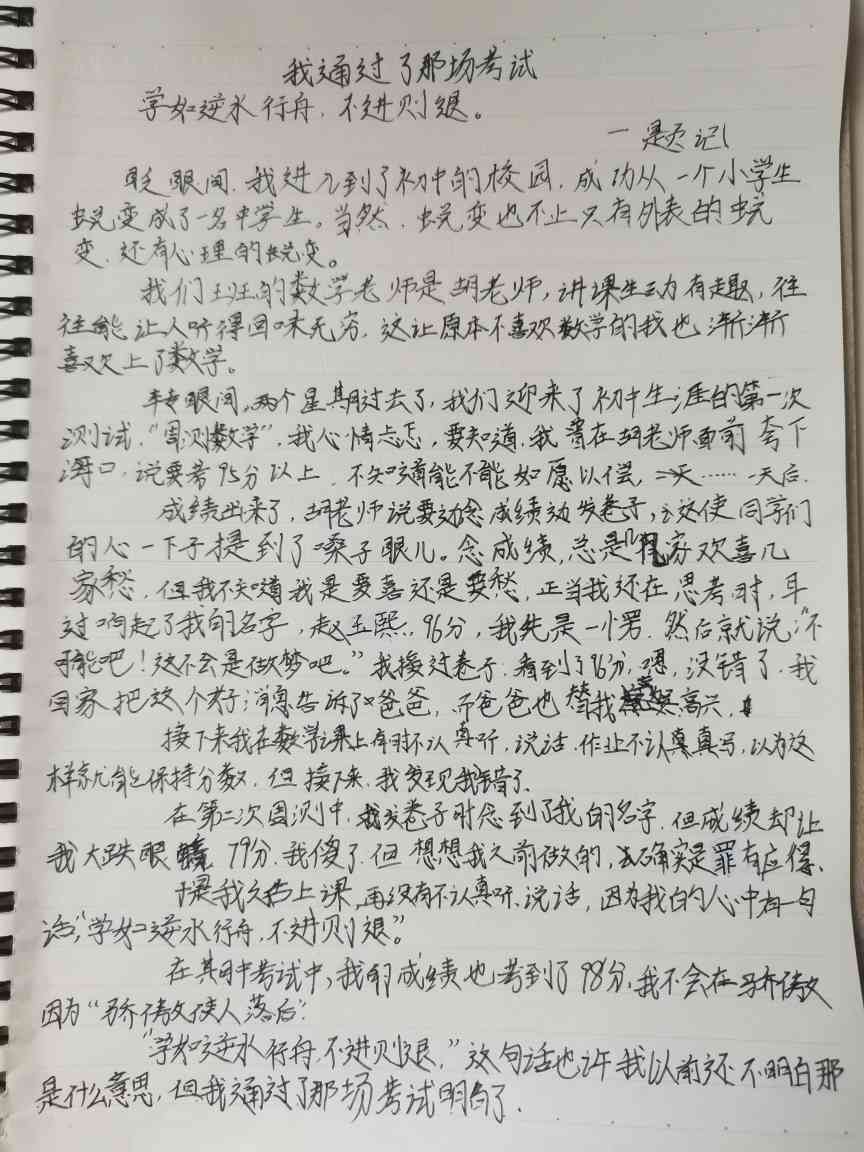 我通过了那场考试
学如逆水行舟,不进则退。
一题记
眨眼间,我进入到了初中的校园,成功从一个小学生
蜕变成了一名中学生。当然,蜕变也不止只有外表的蜕
变,还有心理的蜕变。
我们班的数学老师是胡老师,讲课生动有趣,往
往能让人听得回味无穷,这让原本不喜欢数学的我也渐渐
喜欢上了数学。
转眼间,两个星期过去了,我们迎来了初中生涯的第一次
测试,“周测数学”,我心情忐忑,要知道,我曾在胡老师面前夸下
海口,说要考95分以上,不知道能不能如愿以偿,二天……一天后,
成绩出来了,胡老师说要念成绩发卷子,这使同学们
的心一下子提到了嗓子眼儿。念成绩,总是“几家欢喜几
家愁,但我不知道我是要喜还是要愁,正当我还在思考时,耳
边响起了我的名字,赵玉熙,96分,我先是一愣,然后就说:“不
可能吧!这不会是做梦吧。”我接过卷子,看到了96分,嗯,没错了,我
回家把这个好消息告诉了爸爸,而爸爸也替我高兴,
接下来我在数学课上有时不认真听,说话,作业不认真写,以为这
样就能保持分数,但接下来,我发现我错了,
在第二次周测中,我发卷子时念到了我的名字,但成绩却让
我大跌眼镜,79分,我傻了,但想想我之前做的,确实是罪有应得、
于是我之后上课,再没有不认真听、说话,因为我的心中有一句
话,“学如逆水行舟,不进则退”。
在其中考试中,我的成绩也考到了98分,我不会在骄傲
因为“骄傲使人落后”
“学如逆水行舟,不进则退,”这句话也许我以前还不明白那
是什么意思,但我通过了那场考试明白了,